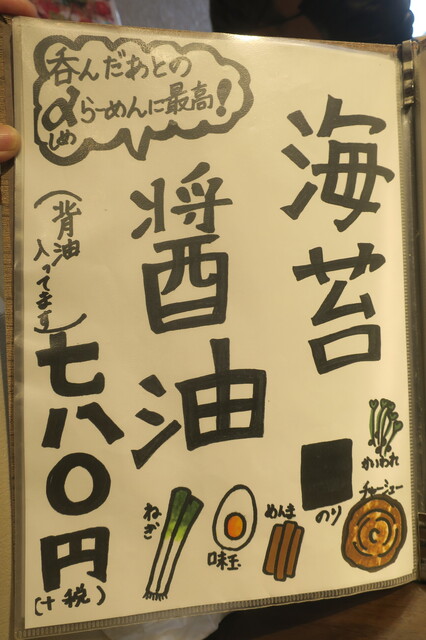 呑んだあとの
〆らーめんに最高!
しめ
海苔
醤油
(背油
入ってます)
七八〇円
(+税)
かいわれ
チャーシュー
のり
めんま
味玉
ねぎ